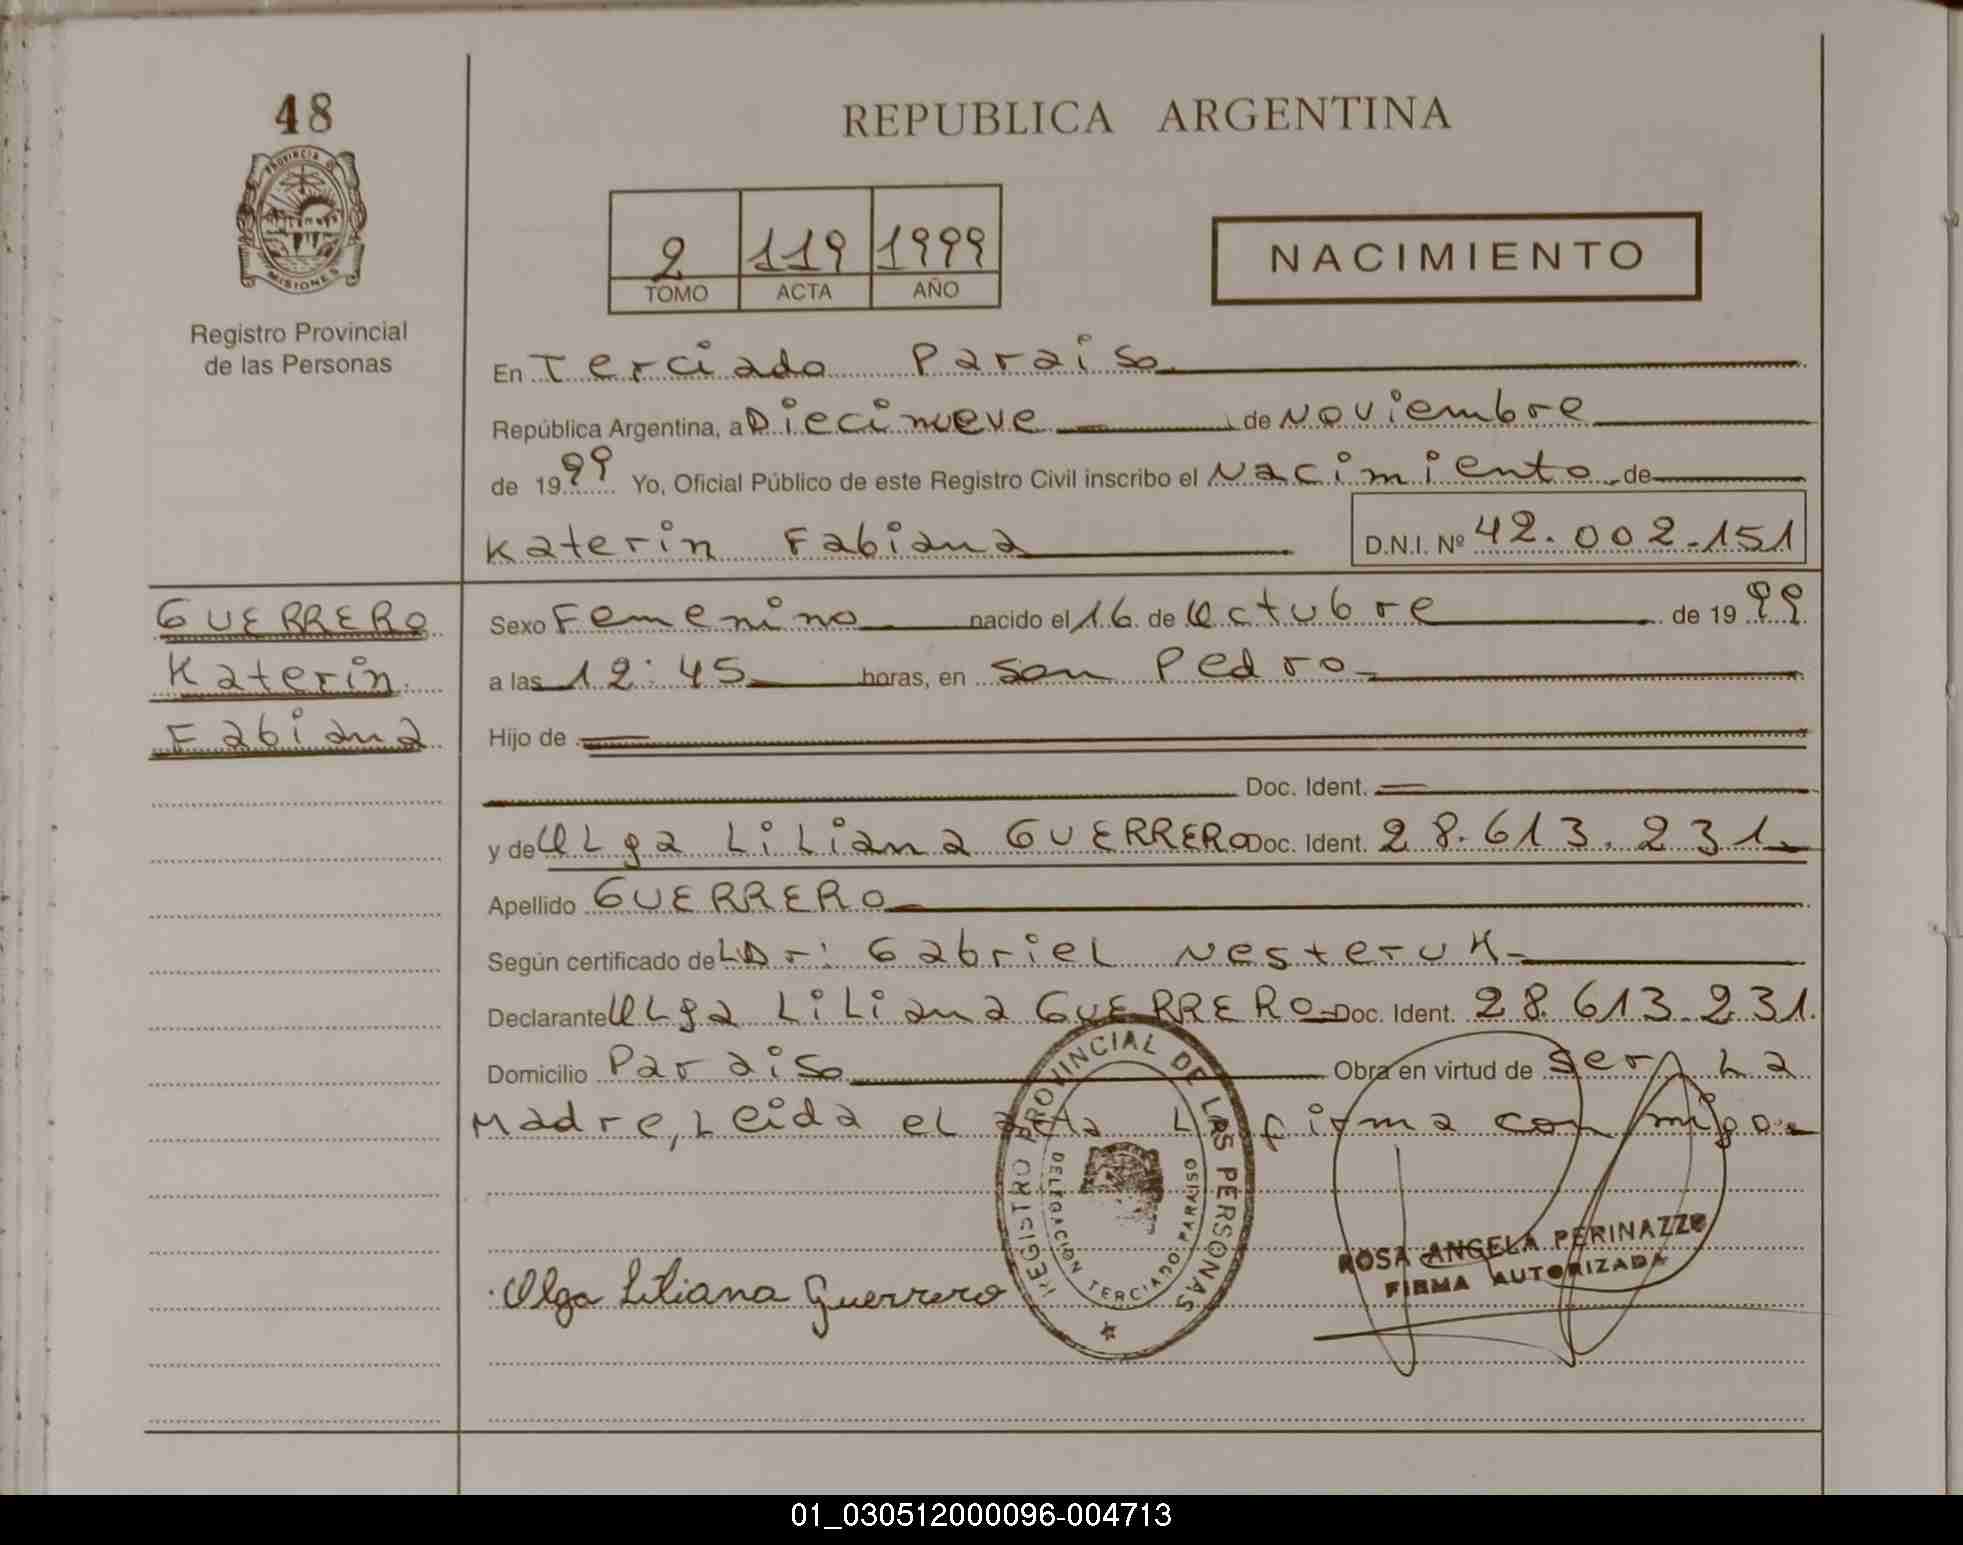 48
PROVINCIA DE
MISIONES
Registro Provincial
de las Personas
REPUBLICA ARGENTINA
2 119 1999
TOMO ACTA AÑO
NACIMIENTO
En Terciado Paraiso
República Argentina, a Diecinueve de Noviembre
de 1999 Yo, Oficial Público de este Registro Civil inscribo el Nacimiento de
Katerin Fabiana D.N.I. Nº 42.002.151
GUERRERO
Katerin
Fabiana
Sexo Femenino nacido el 16 de Octubre de 1999
a las 12:45 horas, en San Pedro
Hijo de
Doc. Ident.
y de Olga Liliana GUERRERO Doc. Ident. 28.613.231
Apellido GUERRERO
Según certificado de L Dr: Gabriel Nesteruk
Declarante Olga Liliana GUERRERO Doc. Ident. 28.613.231.
Domicilio Paraiso Obra en virtud de ser La
Madre, Leida el acta La firma conmigo
REGISTRO PROVINCIAL DE LAS PERSONAS
DELEGACION TERCIADO PARAISO
Olga Liliana Guerrero
ROSA ANGELA PERINAZZO
FIRMA AUTORIZADA
01_030512000096-004713